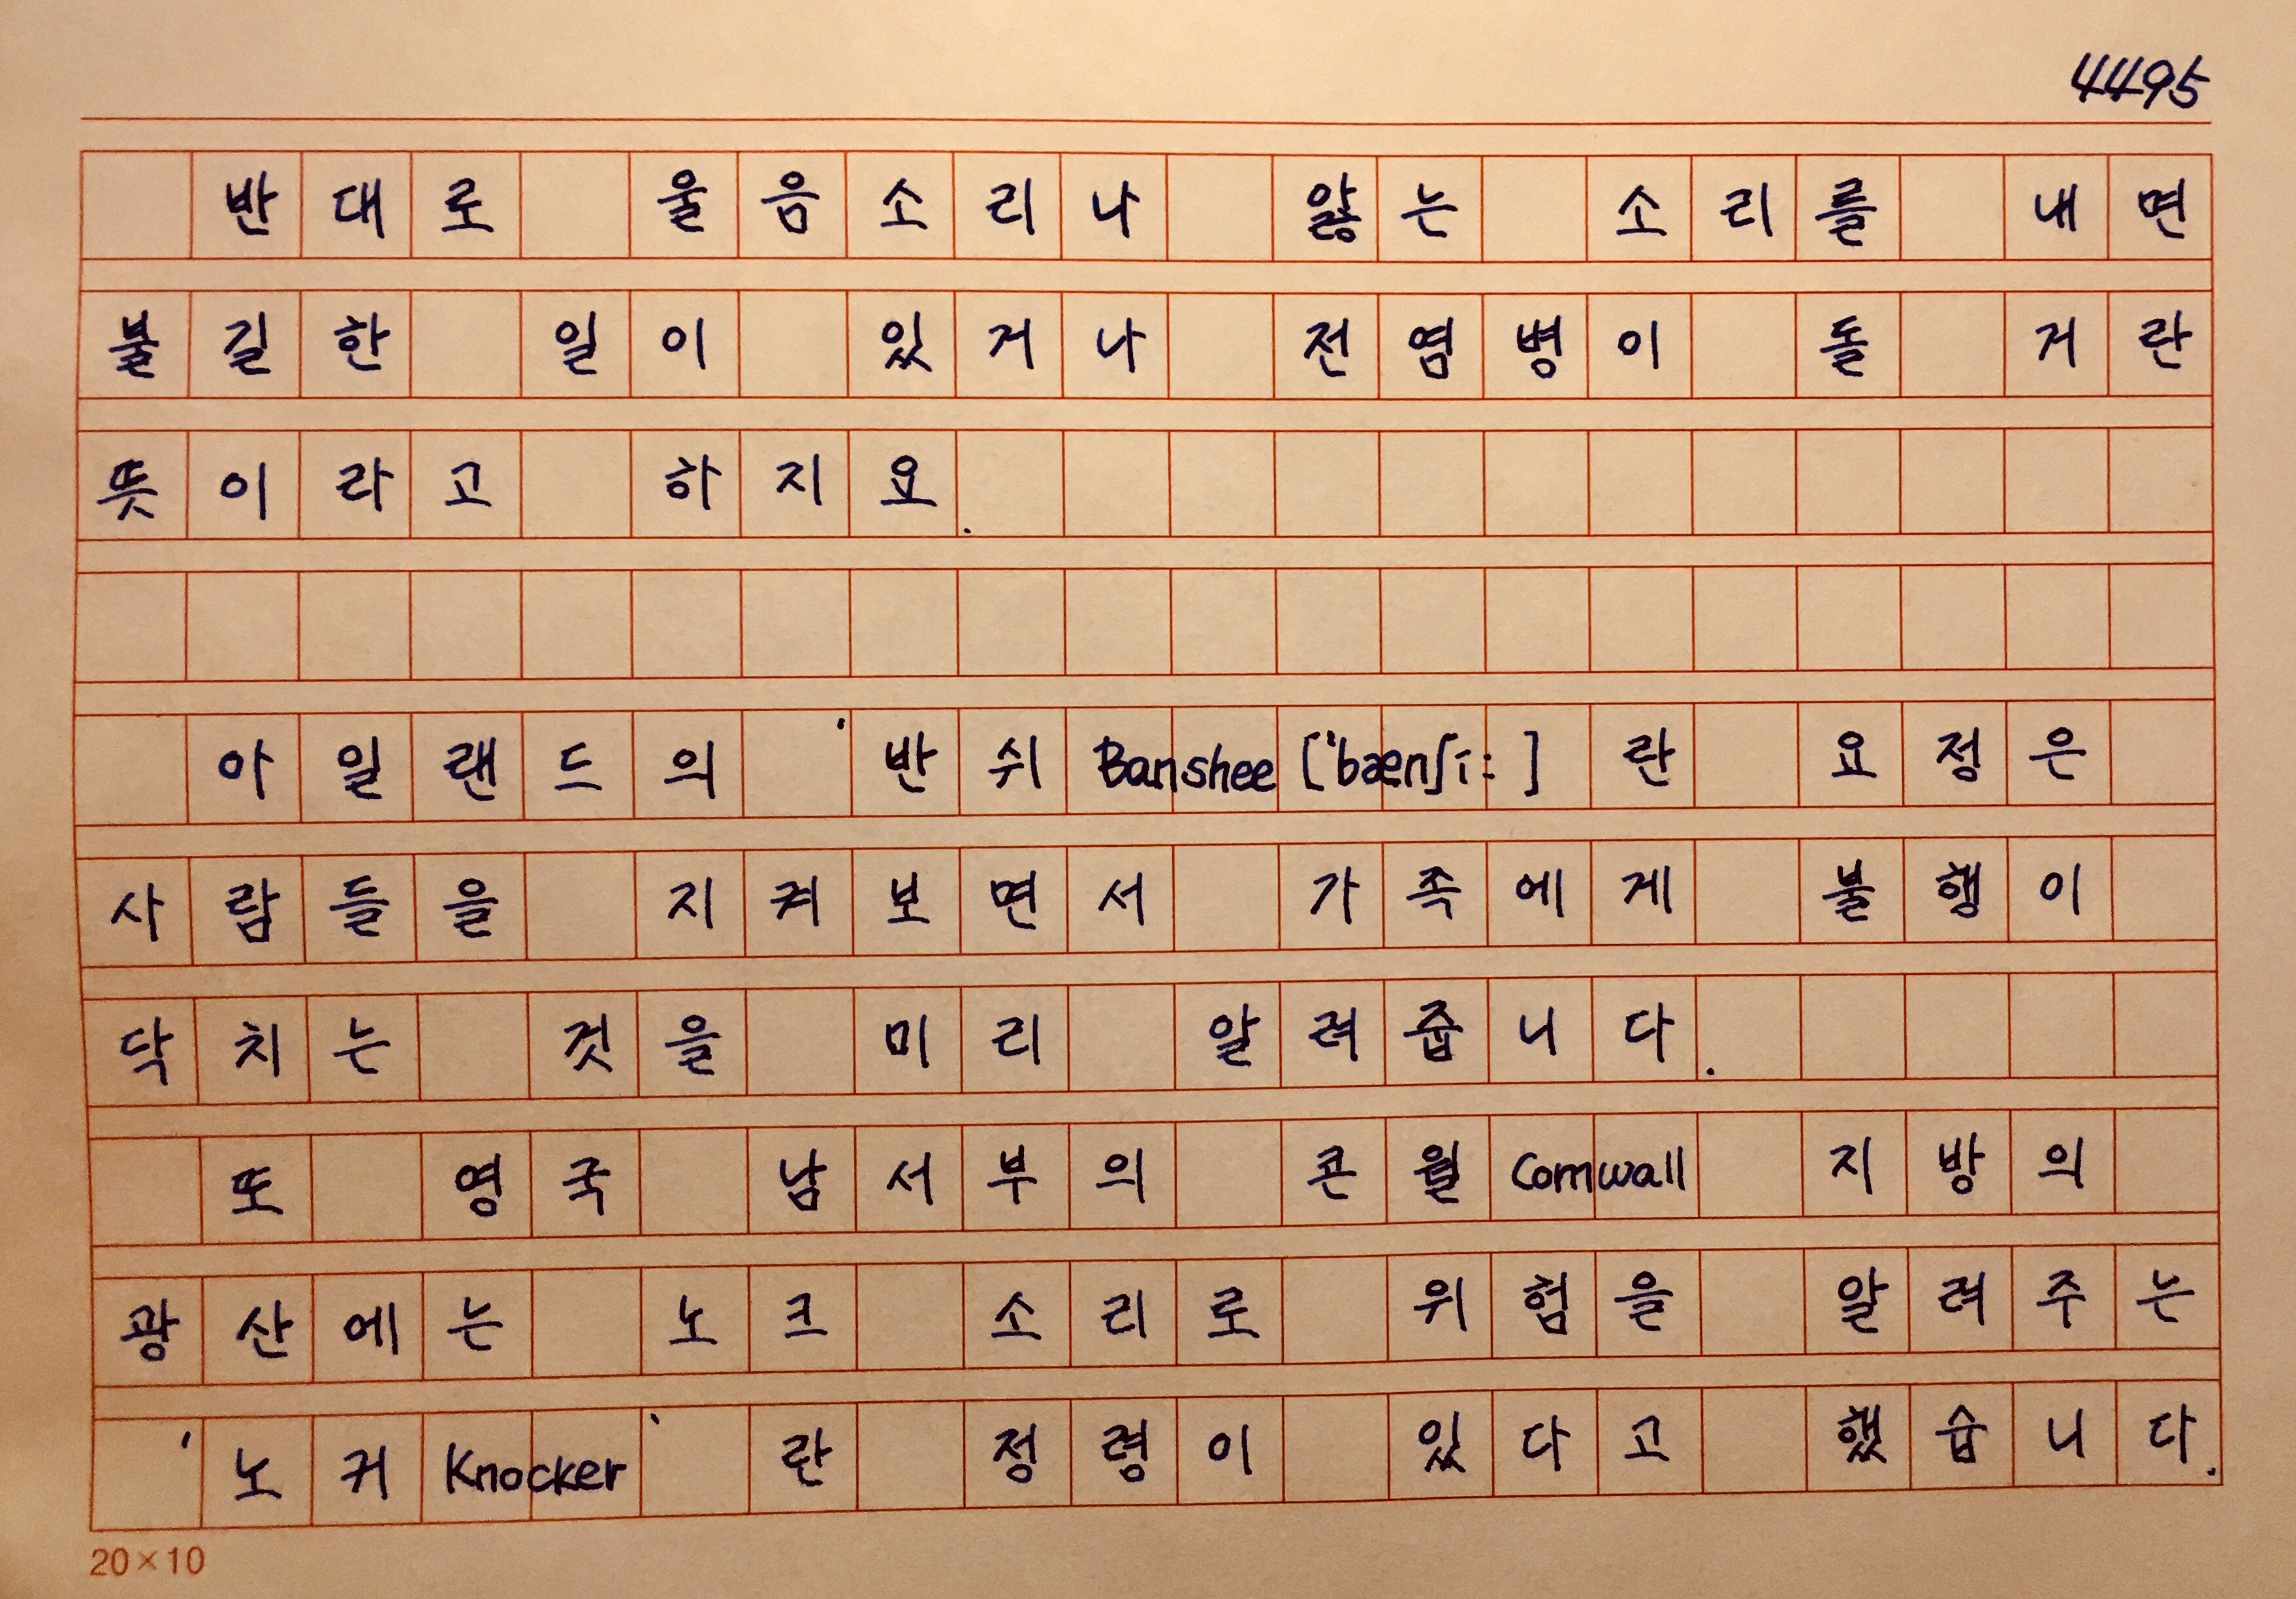 4495
반대로 울음소리나 앓는 소리를 내면
불길한 일이 있거나 전염병이 돌 거란
뜻이라고 하지요.
아일랜드의 '반쉬Banshee [ˈbænʃiː]란 요정은
사람들을 지켜보면서 가족에게 불행이
닥치는 것을 미리 알려줍니다.
또 영국 남서부의 콘월Cornwall 지방의
광산에는 노크 소리로 위험을 알려주는
'노커Knocker'란 정령이 있다고 했습니다.
20×10